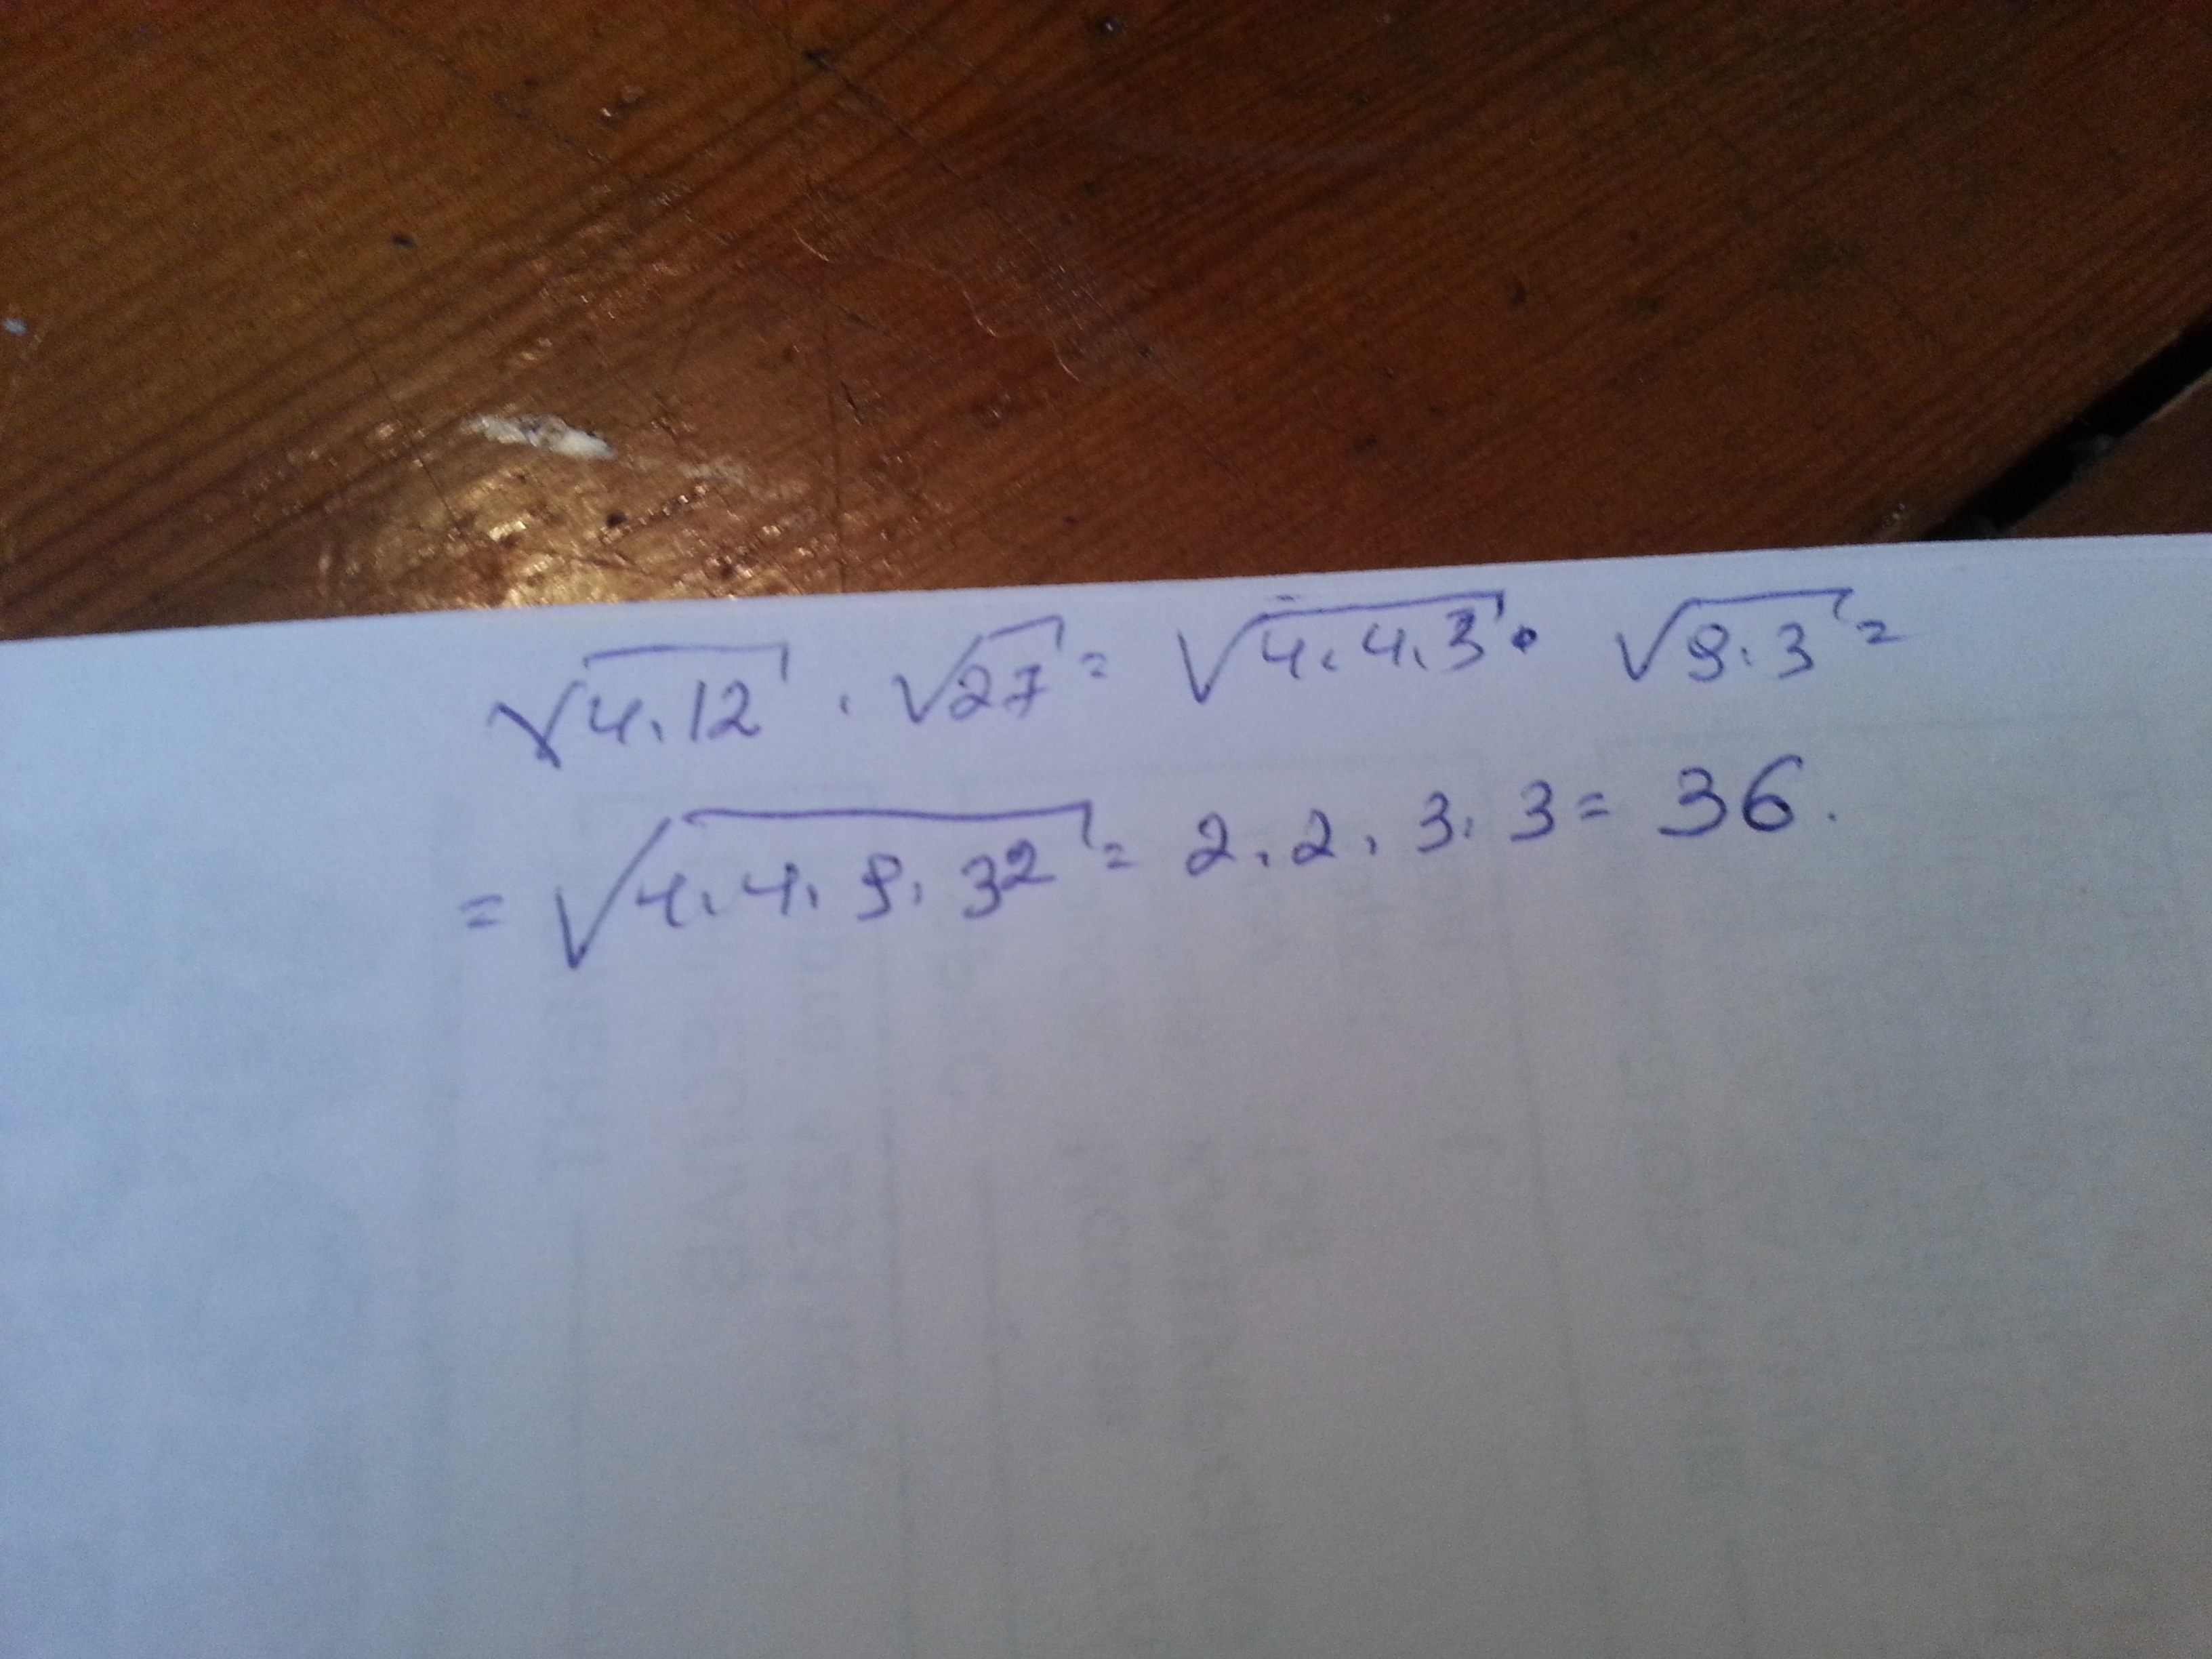 √4.12 . √27 = √4.4.3 • √9.3 =
= √4.4.9.3² = 2.2.3.3 = 36.